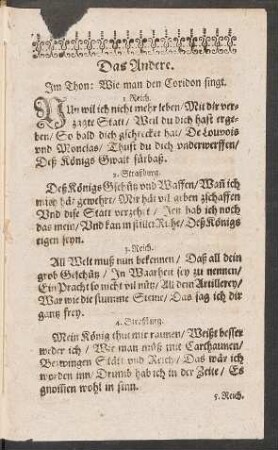 Das Andere.
Im Thon: Wie man den Coridon singt.
1. Reich.
NUn wil ich nicht mehr leben / Mit dir ver-
zagte Statt / Weil du dich hast erge-
ben / So bald dich gschrecket hat / De Louvois
vnd Monclas / Thust du dich vnderwerffen /
Deß Königs Gwalt fürbaß.
2. Straßburg.
Deß Königs Gschütz vnd Waffen / Wañ ich
mich hät gewehrt / Mir hät vil geben zschaffen
Vnd dise Statt verzehrt / Jetz hab ich noch
das mein / Vnd kan in stiller Ruhe / Deß Königs
eigen seyn.
3. Reich.
All Welt muß nun bekennen / Daß all dein
groß Geschütz / In Waarheit sey zu nennen /
Ein Pracht so nicht vil nütz / All dein Artillerey /
War wie die stumme Steine / Das sag ich dir
gantz frey.
4. Straßburg.
Mein König thut mir raumen / Weißt besser
weder ich / Wie man müß mit Carthaunen /
Bezwingen Stätt vnd Reich / Das wär ich
worden inn / Drumb hab ich in der Zeite / Es
gnom̃en wohl in sinn.
5. Reich.